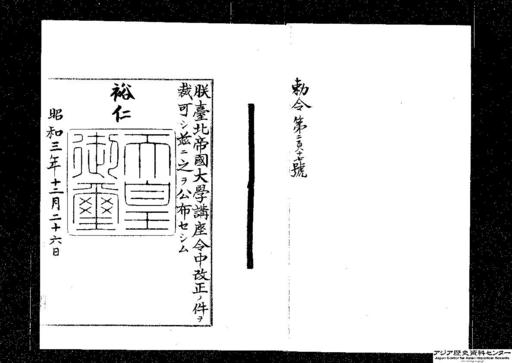 勅令第號
朕臺北帝國大學講座令中改正ノ件ヲ
裁可シ茲ニ之ヲ公布セシム
裕仁
天皇
御璽
昭和三年十二月二十六日
アジア歴史資料センター
Japan Center for Asian Historical Records